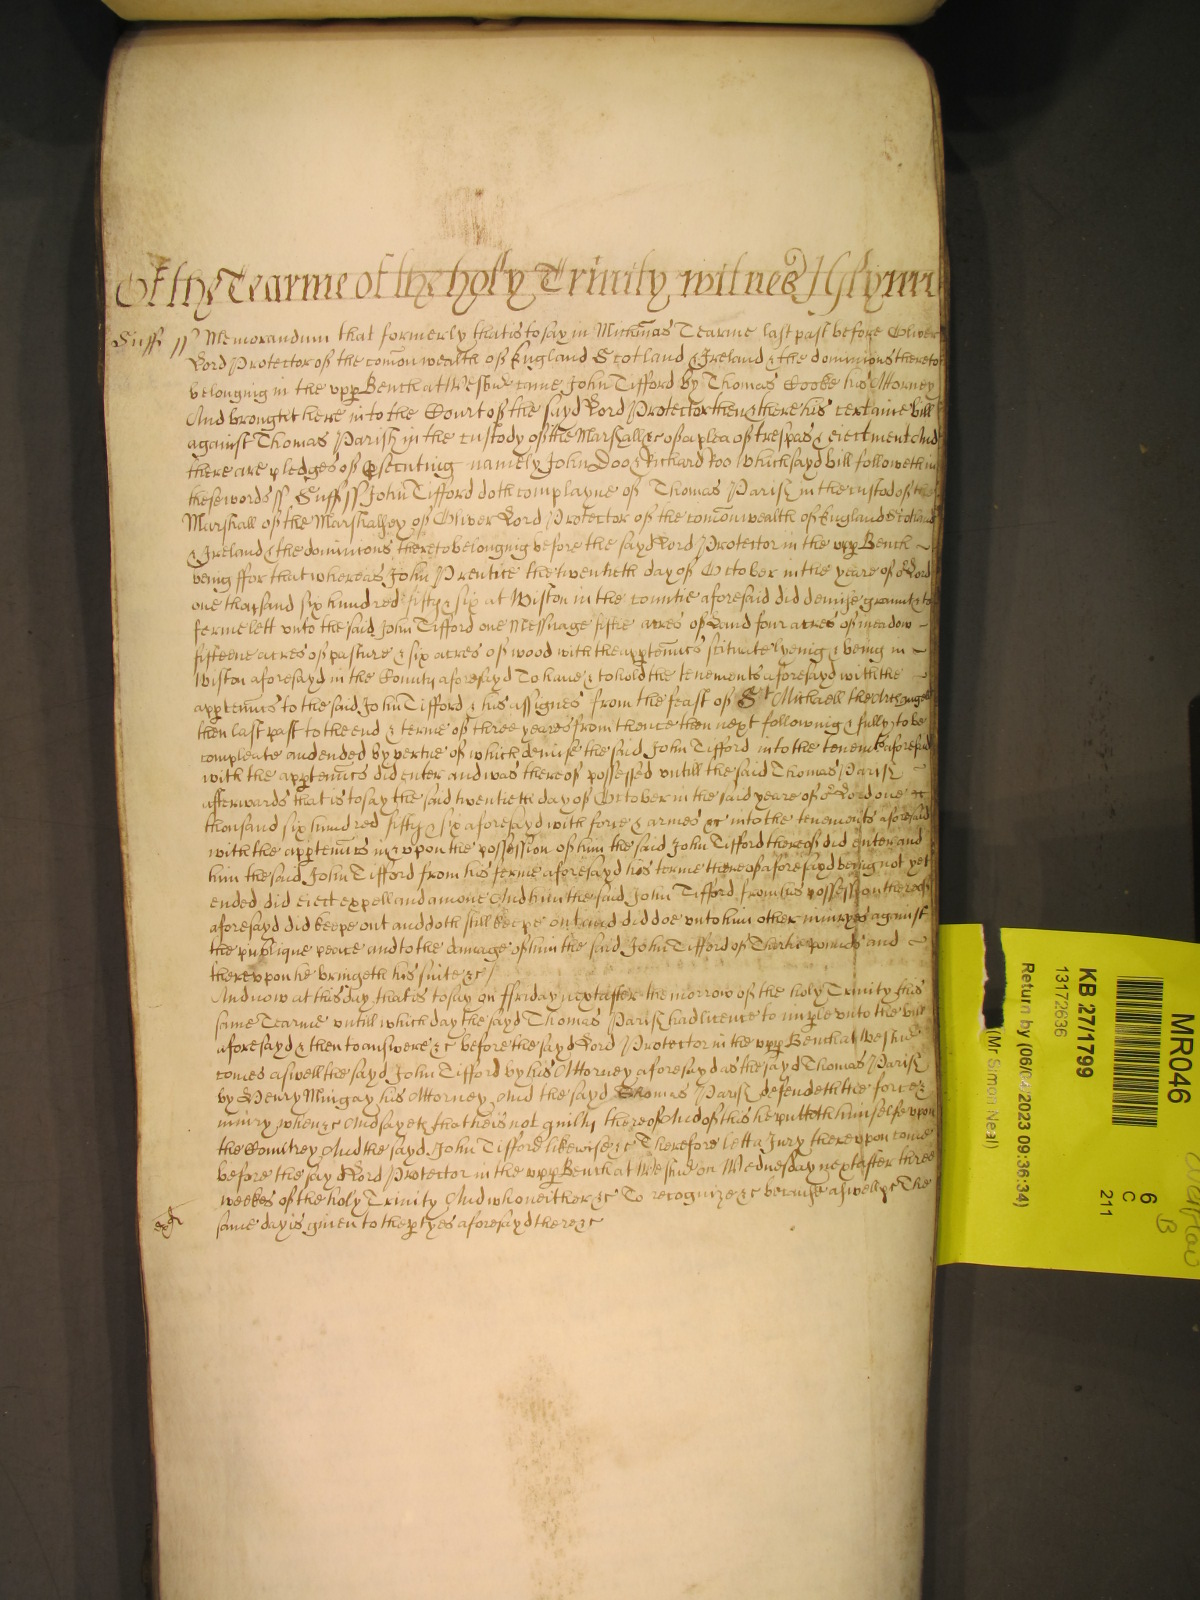 Of the Tearme of the holy Trinity witnes J Glynn
Suff ss Memorandum that formerly that is to say in Michmas Tearme last past before Oliver
Lord Protector of the comonwealth of England Scotland & Ireland & the dominions thereto
belonging in the upp Bench at Westmr came John Tifford by Thomas Cooke his Attorney
And brought here into the Court of the sayd Lord Protector then & there his certaine bill
against Thomas Parish in the custody of the Marshall &c of a plea of trespas & eiectment And
there are pledges of psecuting namely John Doo & Richard Roo Which sayd bill followeth in
these words ss Suff ss John Tifford doth complayne of Thomas Parish in the custod of the
Marshall of the Marshalsey of Oliver Lord Protector of the comonwealth of England Scotland
& Ireland & the dominions thereto belonging before the sayd Lord Protector in the upp Bench
being ffor that whereas John Prentice the twentieth day of October in the yeare of or Lord
one thousand six hundred fifty & six at Wiston in the countie aforesaid did demise graunt & to
ferme lett unto the said John Tifford one Messuage fiftie acres of Land four acres of meadow
fifteene acres of pasture & six acres of wood with the apptenncs scituate lyenig & being in
Wiston aforesayd in the County aforesayd To have & to hold the tenements aforesayd with the
apptenncs to the said John Tifford & his assignes from the feast of St Michaell the Archangel
then last past to the end & terme of three yeares from thence then next followinig & fully to be
compleate and ended by vertue of which demise the said John Tifford into the tenemts aforesaid
with the apptenncs did enter and was thereof possessed untill the said Thomas Parish
afterwards that is to say the said twentieth day of October in the said yeare of or Lord one
thousand six hundred fifty & six aforesayd with force & armes &c into the tenements aforesaid
with the apptenncs in & upon the possession of him the said John Tifford thereof did enter and
him the said John Tifford from his ferme aforesayd his terme thereof aforesayd being not yet
ended did eiect expell and amove And him the said John Tifford from his possession thereof
aforesayd did keepe out and doth still keepe out and did doe unto him other iniuryes against
the publique peace and to the damage of him the said John Tifford of Thirtie pounds and
thereupon he bringeth his suite &c /
And now at this day that is to say on ffriday next after the morrow of the holy Trinity this
same Tearme untill which day the sayd Thomas Parish had licence to imple unto the bill
aforesayd & then to answere &c before the sayd Lord Protector in the upp Bench at Westmr
comes aswell the sayd John Tifford by his Attorney aforesayd as the sayd Thomas Parish
by Henry Mingay his Attorney And the sayd Thomas Parish defendeth the force &
iniury when &c And sayeth that he is not guilty thereof And of this he putteth himselfe upon
the Countrey And the sayd John Tifford likewise &c Therefore lett a Jury thereupon come
before the sayd Lord Protector in the upp Bench at Westmr on Wednesday next after three
weekes of the holy Trinity And who neither &c To recognize &c because aswell &c The
same day is given to the ptyes aforesayd there &c
MR046
KB 27/1799
13172636
Return by (06/04/2023 09:36:34)
(Mr Simon Neal)
6
C
211
B